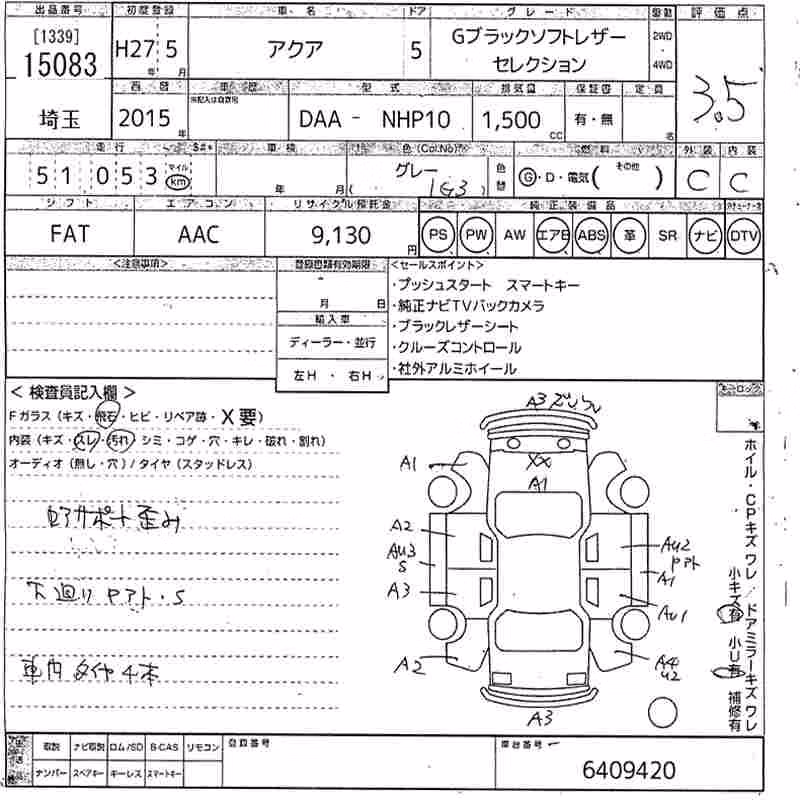 出品番号 初度登録 車名 ドア グレード 駆動 評価点
[1339] 15083 H27年 5月 アクア 5 Gブラックソフトレザー セレクション 2WD 4WD 3.5
西暦 車歴 型式 排気量 保証書 定員
埼玉 2015年 ※記入は自家用 DAA - NHP10 1,500 CC 有・無 名
走行 車検 色(Col.No) 燃料 外装 内装
51,053 マイル km 年 月 グレー (1G3) 色替 G・D・電気( その他 ) C C
シフト エアコン リサイクル預託金 純正装備品
FAT AAC 9,130円 PS PW AW エアB ABS 革 SR ナビ DTV
<注意事項> 登録書類有効期限 <セールスポイント>
月 日
輸入車
ディーラー・並行
左H ・ 右H
・プッシュスタート スマートキー
・純正ナビTVバックカメラ
・ブラックレザーシート
・クルーズコントロール
・社外アルミホイール
< 検査員記入欄 >
Fガラス (キズ・飛石・ヒビ・リペア跡・X要)
内装 (キズ・スレ・汚れ・シミ・コゲ・穴・キレ・破れ・割れ)
オーディオ (無し・穴) / タイヤ (スタッドレス)
サポート歪み
下廻り サアト・S
車内 タイヤ4本
キーロック
A3
XX
A1
A1
A2
AU3
S
A3
A2
AU2
サアト
A1
AU1
A4
U2
A3
ホイル・CPキズワレ/ドアミラーキズワレ
小キズ有 小U有 補修有
取説 ナビ取説 ロム/SD B-CAS リモコン 登録番号 車台番号
ナンバー スペアキー キーレス スマートキー 6409420